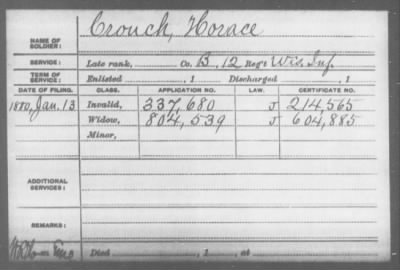 Crouch, Horace
NAME OF SOLDIER:
SERVICE: Late rank, Co. B, 12 Reg't Wis. Inf.
TERM OF SERVICE: Enlisted , 1 Discharged , 1
DATE OF FILING. CLASS. APPLICATION NO. LAW. CERTIFICATE NO.
1880, Jan. 13 Invalid, 337,680 J 214,565
Widow, 804,539 J 604,885
Minor,
ADDITIONAL SERVICES:
REMARKS:
Died , 1 , at